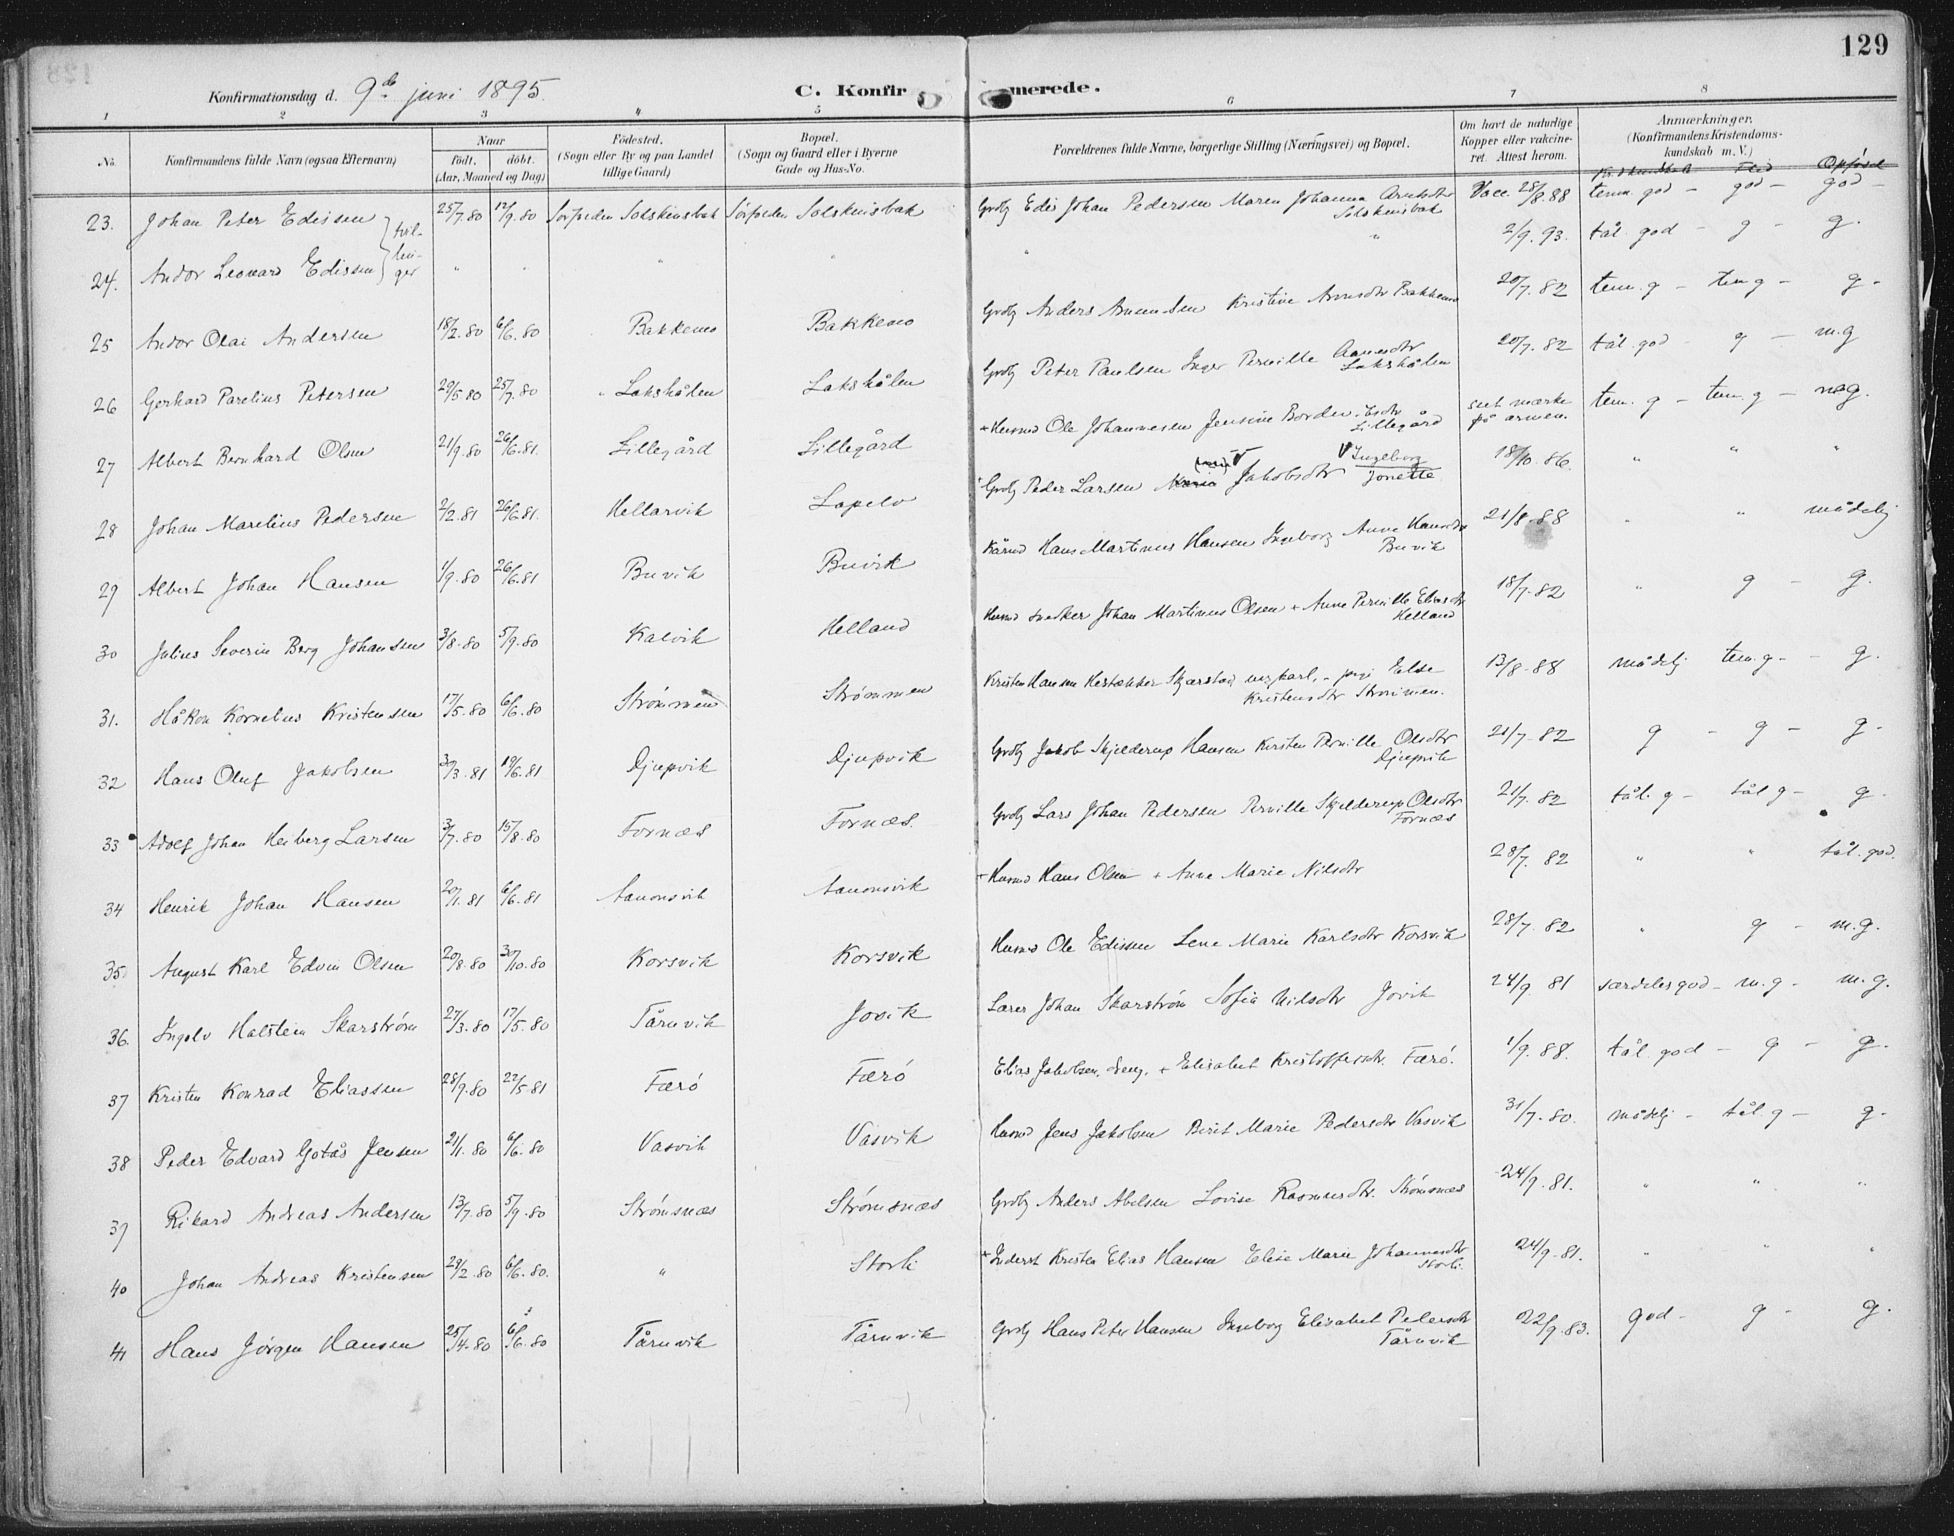 129
Konfirmationsdag d. 9de juni 1895. C. Konfirmerede.
1 2 3 " 5 6 7 8
No. Konfirmandens fulde Navn (ogsaa Efternavn) Naar født. døbt. (Aar, Maaned og Dag) Fødested. (Sogn eller By og paa Landet tillige Gaard) Bopæl. (Sogn og Gaard eller i Byerne Gade og Hus-No. Forældrenes fulde Navne, borgerlige Stilling (Næringsvei) og Bopæl. Om havt de naturlige Kopper eller vakcineret. Attest herom. Anmærkninger. (Konfirmandens Kristendomskundskab m. V.)
Kundskab Flid Opførsel
23. Johan Peter Edissen } tvillinger 25/7.80 12/9.80 Sørfjeden Solskinsbak Sørfjeden Solskinsbak Grdbg Edis Johan Pedersen Maren Johanna Arntsdtr Solskinsbak Vacc. 28/8.88 tem. god - god - god -
24. Andor Leonard Edissen " " " " " " 2/9.93. tål. god - g - g.
25 Andor Olai Andersen 18/2.80 6/6.80 Bakkemo Bakkemo Grdbg Anders Kristine Bakkemo 20/7.82 tem. g - tem g - g -
26 Gerhard Parelius Petersen 29/5.80 25/7.80 " Lakshålen Lakshålen Grdbg Peter Paulsen Inger Pernille Lakshålen 20/7.82 tål. god - g - m.g
27 Albert Bernhard Olsen 21/9.80 26/6.81. Lillegård Lillegård + Husmd Ole Johannesen Jensine Lillegård set mærke på armen. tem. g - tem. g - nog.
28 Johan Marelius Pedersen 2/2.81 26/6.81. Hellarvik Lapelv + Grdbg Peder Larsen Maria Jakobsdtr V Ingeborg Jonette 18/10.86. " " "
29 Albert Johan Hansen 1/9.80 26/6.81 Buvik Buvik Hans Martinus Hansen Ingeborg Anne Hansdtr Buvik 21/8.88 " " mådelig
30 Julius Severin Berg Johansen 3/8.80 5/9.80 Kalvik Helland Husmd snedker Johan Martinus Olsen + Anne Pernille Eliasdtr Helland 18/7.82 " g - g.
31. Håkon Kornelius Kristensen 17/5.80 6/6.80 Strømmen Strømmen Kristen Hansen Skjærstad ungkarl, - pige Else Kristensdtr Strømmen. 13/8.88 mådelig tem. g. - g.
32 Hans Oluf Jakobsen 3/3.81 19/6.81 Djupvik Djupvik Grdbg Jakob Skjelderup Hansen Kirsten Pernille Olsdtr Djupvik 21/7.82 g - g - g.
33 Adolf Johan Heiberg Larsen 3/7.80 15/8.80 Fornæs Fornæs. Grdbg Lars Johan Pedersen Pernille Skjelderup Olsdtr Fornæs 21/7.82 tål. g - tål g - g.
34 Henrik Johan Hansen 20/1.81 6/6.81 Aanonsvik Aanonsvik + Husmd Hans Olsen + Anne Marie Nilsdtr 28/7.82 " " tål. god.
35 August Karl Edvin Olsen 20/8.80 30/10.80 Korsvik Korsvik Husmd Ole Edissen Lene Marie Karlsdtr Korsvik 28/7.82 " g - m.g.
36. Ingolv Halstein Skarstrøm 27/3.80 17/5.80 Tårnvik Jovik Lærer Johan Skarstrøm Sofia Nilsdtr Jovik 24/9.81 særdeles god - m.g. - m.g.
37 Kristen Konrad Eliassen 28/9.80 22/5.81 Færö Færö Elias Jakobsen, + Elisabet Kristoffersdtr. Færö. 1/9.88. tål. god - g - g.
38 Peder Edvard Gotås Jensen 21/1.80 6/6.80 Vasvik Vasvik Husmd Jens Jakobsen Berit Marie Pedersdtr Vasvik 31/7.80. mådelig - tål. g - g.
39 Rikard Andreas Andersen 13/7.80 5/9.80 Strømsnæs Strømsnæs Grdbg Anders Abelsen Lovise Rasmusdtr. Strømsnæs 24/9.81. " " "
40 Johan Andreas Kristensen 29/2.80 6/6.80. " Storli + Inderst Kristen Elias Hansen Elise Marie Johannesdtr Storli. 24/9.81. " " "
41 Hans Jørgen Hansen 25/4.80 6/6.80 Tårnvik Tårnvik Grdbg Hans Peter Hansen Ingeborg Elisabet Petersdtr Tårnvik 22/9.83. god - g - g.